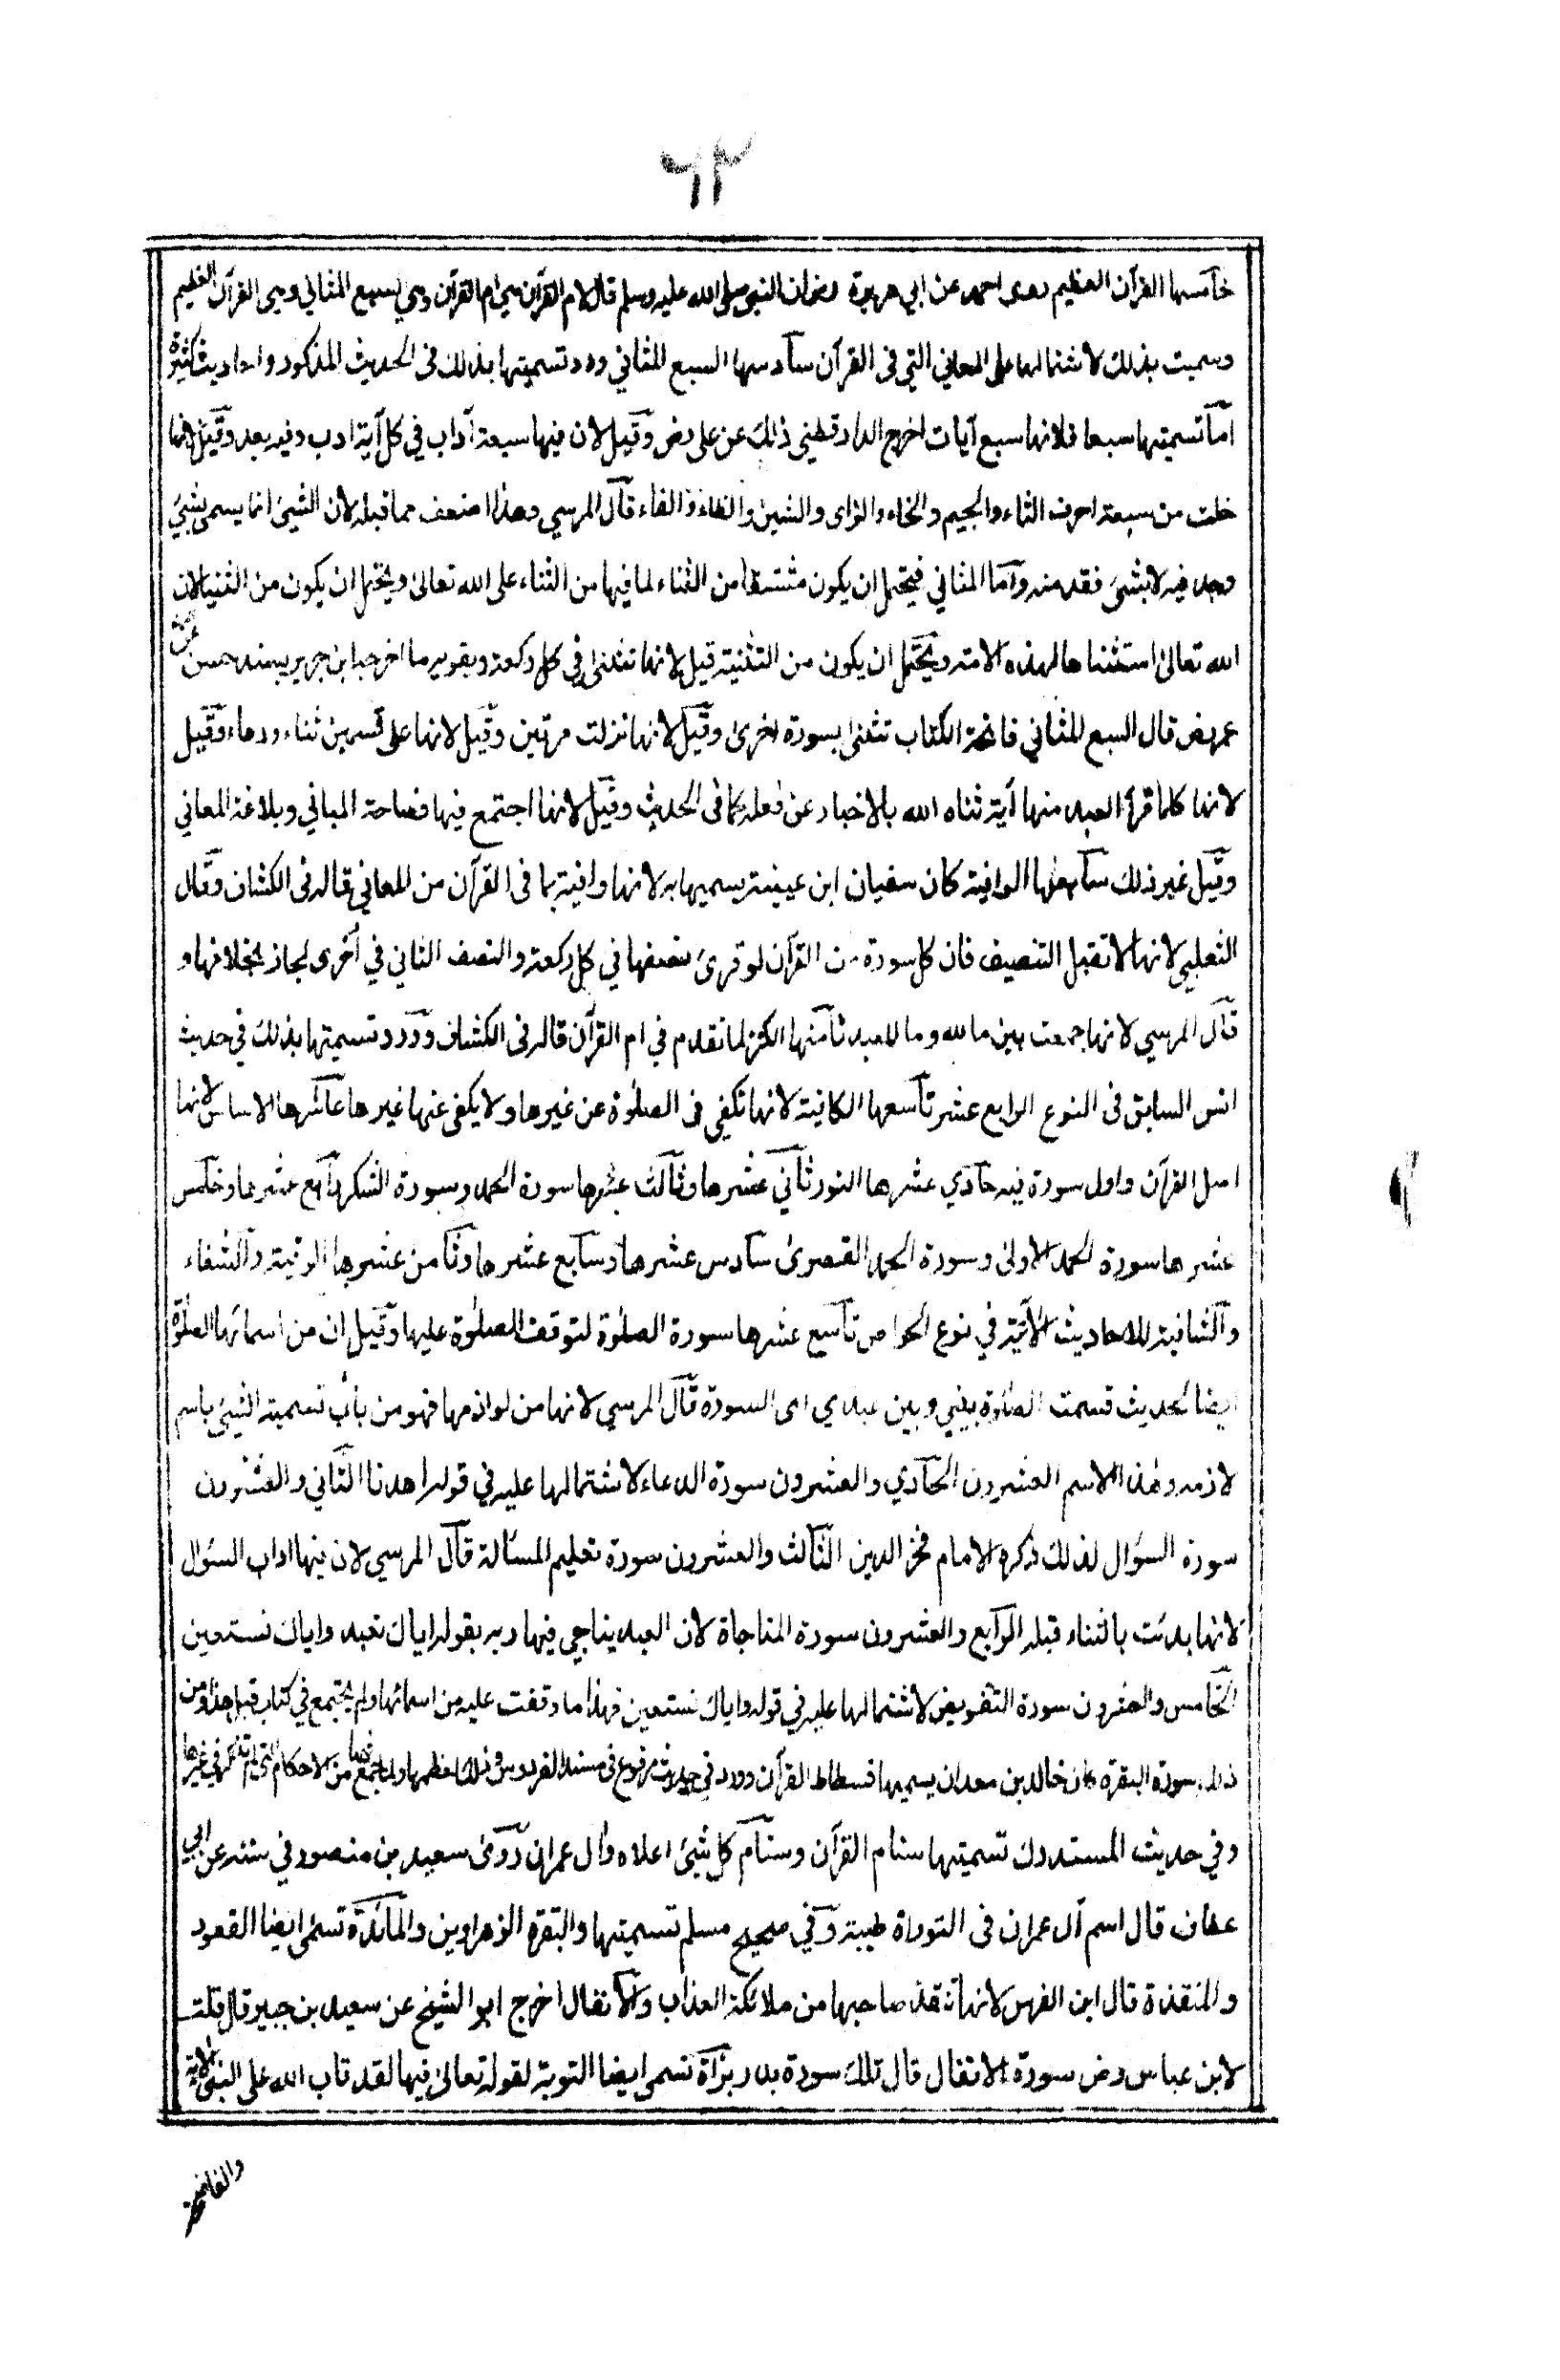 ٦٢
خامسها القرآن العظيم روى احمد عن ابي هريرة رض ان النبي صلى الله عليه وسلم قال لام القرآن هي ام القرآن وهي السبع المثاني وهي القرآن العظيم
وسميت بذلك لاشتمالها على المعاني التي في القرآن سادسها السبع المثاني ورد تسميتها بذلك في الحديث المذكور واحاديث كثيرة
اما تسميتها سبعا فلانها سبع آيات اخرج الدارقطني ذلك عن علي رض وقيل لان فيها سبعة آداب في كل آية ادب وفيه بعد وقيل لانها
خلت من سبعة احرف الثاء والجيم والخاء والزاى والشين والظاء والفاء قال المرسي وهذا اضعف مما قبله لان الشيئ انما يسمى بشيئ
وجد فيه لا بشئ فقد منه واما المثاني فيحتمل ان يكون مشتقا من الثناء لما فيها من الثناء على الله تعالى ويحتمل ان يكون من الثنيا لان
الله تعالى استثناها لهذه الامة ويحتمل ان يكون من التثنية قيل لانها تثنى في كل ركعة ويقويه ما اخرجه ابن جرير بسند حسن عن
عمر رض قال السبع المثاني فاتحة الكتاب تثنى بسورة اخرى وقيل لانها نزلت مرتين وقيل لانها على قسمين ثناء ودعاء وقيل
لانها كلما قرأ العبد منها آية ثناه الله بالاخبار عن فعله كما في الحديث وقيل لانها اجتمع فيها فصاحة المباني وبلاغة المعاني
وقيل غير ذلك سابعها الوافية كان سفيان ابن عيينة يسميها به لانها وافية بما في القرآن من المعاني قاله في الكشاف وقال
الثعلبي لانها لا تقبل التنصيف فان كل سورة من القرآن لو قرئ نصفها في كل ركعة والنصف الثاني في أخرى لجاز بخلافها و
قال المرسي لانها جمعت بين ما لله وما للعبد ثامنها الكنز لما تقدم في ام القرآن قاله في الكشاف وورد تسميتها بذلك في حديث
انس السابق في النوع الرابع عشر تاسعها الكافية لانها تكفي في الصلوة عن غيرها ولا يكفي عنها غيرها عاشرها الاساس لانها
اصل القرآن واول سورة فيه حادي عشرها النور ثاني عشرها وثالث عشرها سورة الحمد وسورة الشكر رابع عشرها وخامس
عشرها سورة الحمد الاولى وسورة الحمد القصرى سادس عشرها وسابع عشرها وثامن عشرها الرقية والشفاء
والشافية للاحاديث الآتية في نوع الخواص تاسع عشرها سورة الصلوة لتوقف الصلوة عليها وقيل ان من اسمائها الصلوة
ايضا لحديث قسمت الصلوة بيني وبين عبدي اى السورة قال المرسي لانها من لوازمها فهو من باب تسمية الشيئ باسم
لازمه وهذا الاسم العشرون الحادي والعشرون سورة الدعاء لاشتمالها عليه في قوله اهدنا الثاني والعشرون
سورة السؤال لذلك ذكره الامام فخر الدين الثالث والعشرون سورة تعليم المسألة قال المرسي لان فيها اداب السؤال
لانها بدئت بالثناء قبله الرابع والعشرون سورة المناجاة لان العبد يناجي فيها ربه بقوله اياك نعبد واياك نستعين
الخامس والعشرون سورة التفويض لاشتمالها عليه في قوله واياك نستعين فهذا ما وقفت عليه من اسمائها ولم يجتمع في كتاب قبل هذا ومن
ذلك سورة البقرة كان خالد بن معدان يسميها فسطاط القرآن وورد في حديث مرفوع في مسند الفردوس وذلك لعظمها ولما جمع فيها من الاحكام التي لم تذكر في غيرها
وفي حديث المستدرك تسميتها سنام القرآن وسنام كل شيئ اعلاه وآل عمران روى سعيد بن منصور في سننه عن ابي
عطاف قال اسم آل عمران في التوراة طيبة وفي صحيح مسلم تسميتها والبقرة الزهراوين والمائدة تسمى ايضا العقود
والمنقذة قال ابن الفرس لانها تنقذ صاحبها من ملائكة العذاب والانفال اخرج ابو الشيخ عن سعيد بن جبير قال قلت
لابن عباس رض سورة الانفال قال تلك سورة بدر براءة تسمى ايضا التوبة لقوله تعالى فيها لقد تاب الله على النبي الآية
والفاضحة